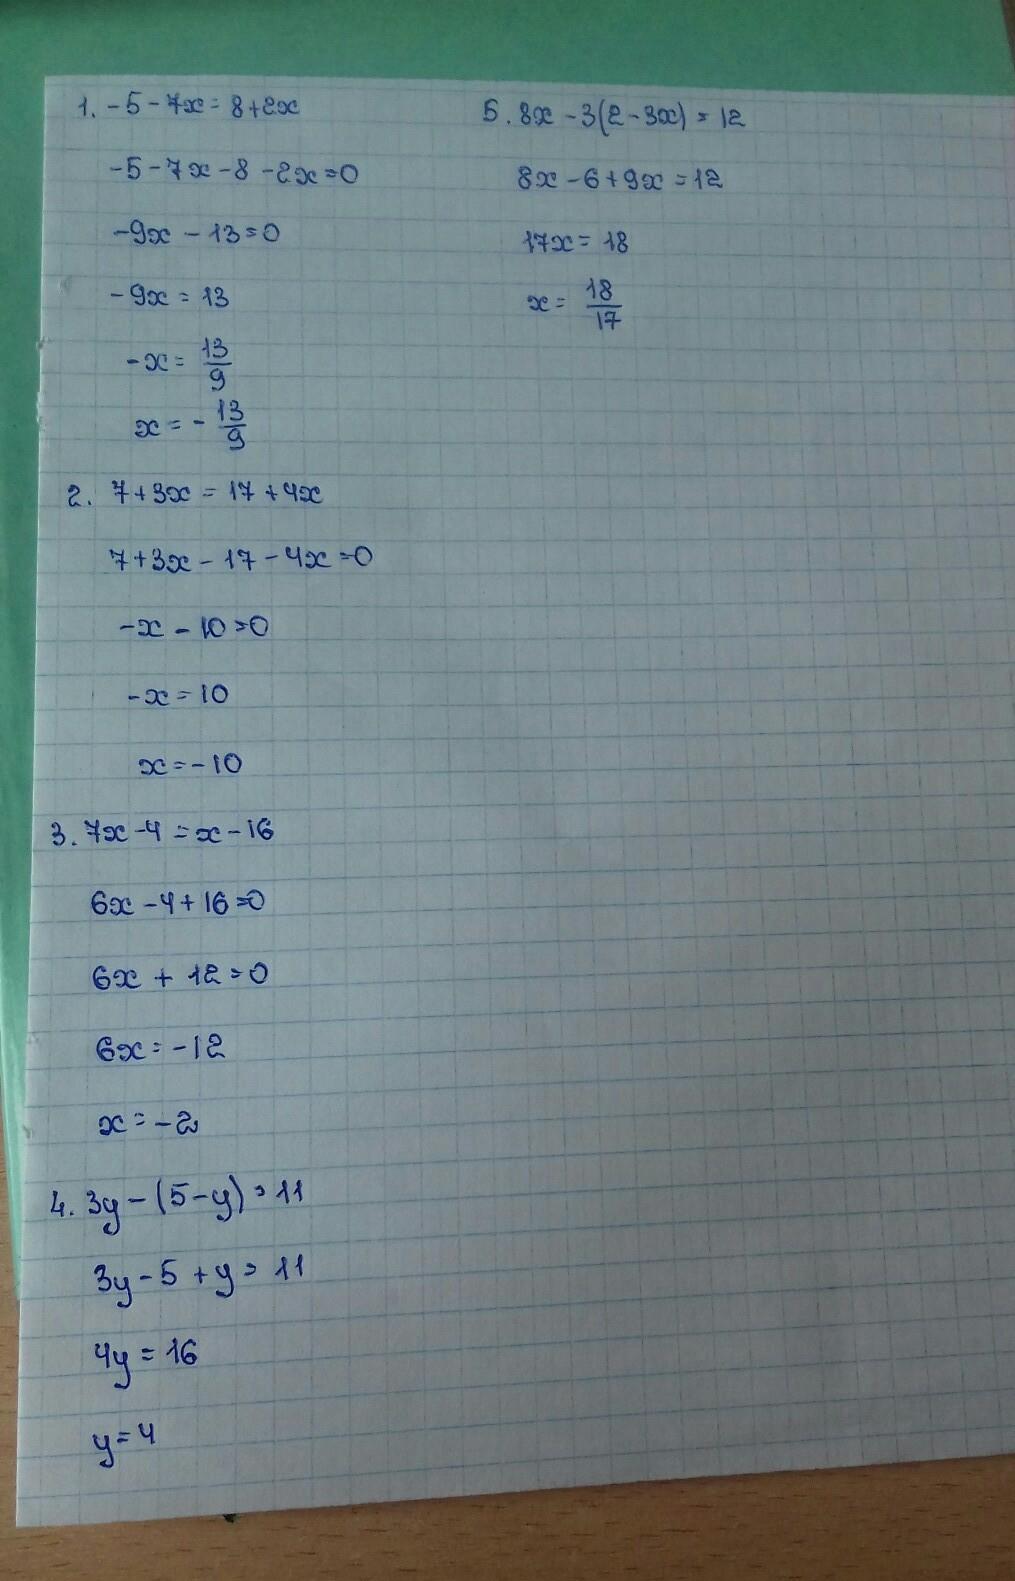 1. -5-7x=8+2x
-5-7x-8-2x=0
-9x-13=0
-9x=13
-x=13/9
x=-13/9
2. 7+3x=17+4x
7+3x-17-4x=0
-x-10=0
-x=10
x=-10
3. 7x-4=x-16
6x-4+16=0
6x+12=0
6x=-12
x=-2
4. 3y-(5-y)=11
3y-5+y=11
4y=16
y=4
5. 8x-3(2-3x)=12
8x-6+9x=12
17x=18
x=18/17